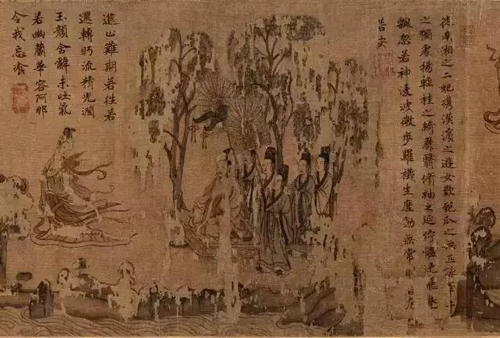 從南湘之二妃攜漢濱之遊女歎匏瓜之無匹詠
之獨處揚輕袿之綺靡翳修袖之延佇體迅飛鳧
飄忽若神陵波微步羅襪生塵動無常則若
若安
進止難期若往若
還轉眄流精光潤
玉顏含辭未吐氣
若幽蘭華容阿那
令我忘飡